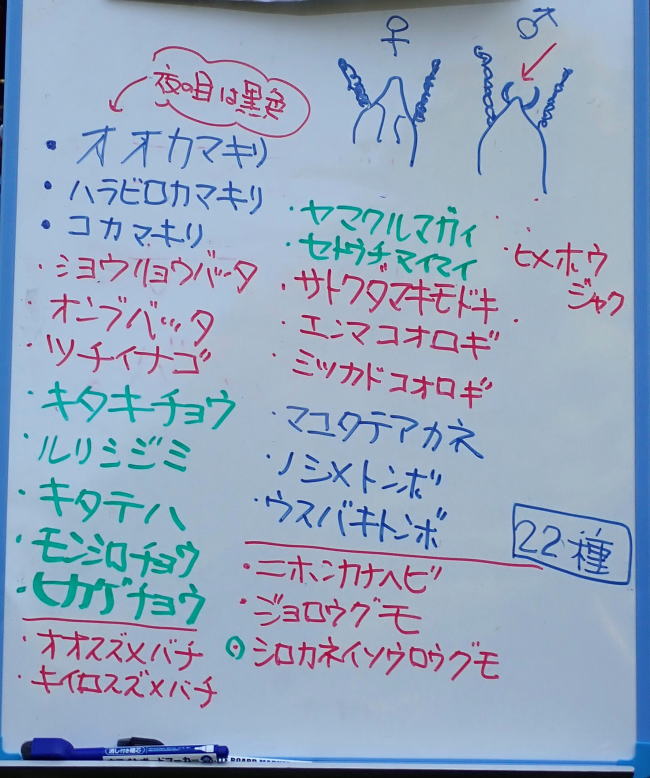 ♀
♂
夜の目は黒色
・オオカマキリ
・ハラビロカマキリ
・コカマキリ
・ショウリョウバッタ
・オンブバッタ
・ツチイナゴ
・キタキチョウ
・ルリシジミ
・キタテハ
・モンシロチョウ
・ヒカゲチョウ
・オオスズメバチ
・キイロスズメバチ
・ヤマクルマガイ
・セトウチマイマイ
・サトクダマキモドキ
・エンマコオロギ
・ミツカドコオロギ
・マユタテアカネ
・ノシメトンボ
・ウスバキトンボ
・ニホンカナヘビ
・ジョロウグモ
⊙シロカネイソウロウグモ
・ヒメホウ
ジャク
22種